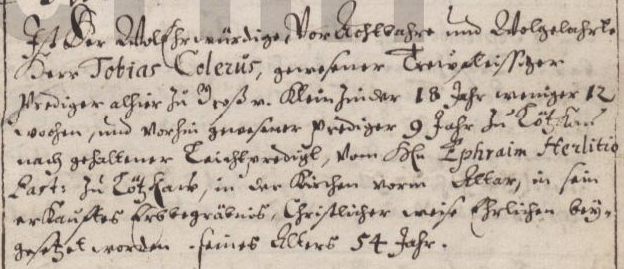 Ist Der WolEhrwürdige, VorAchtbahre und Wolgelahrte
Herr Tobias Colerus, gewesener Trewfleissiger
Prediger alhier zu Groß u. Klein 18 Jahr weniger 12
wochen, und vorhin gewesener Prediger 9 Jahr zu
nach gehaltener Leichpredigt, vom Hn Ephraim Herlitio
Past: zu, in der Kirchen vorm Altar, in sein
erkaufftes Erbbegräbnis, Christlicher weise Ehrlichen bey-
gesetzet worden. seines Alters 54 Jahr.